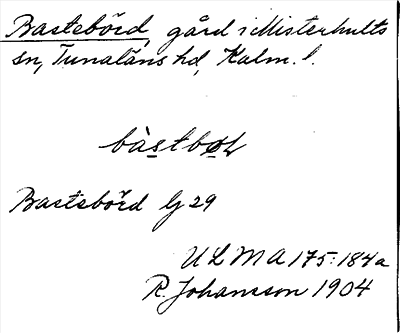 Bastebörd, gård i Misterhults
sn, Tunaläns hd, Kalm. l.
Bastebörd Lj 29
ULMA 175:184a
R. Johansson 1904